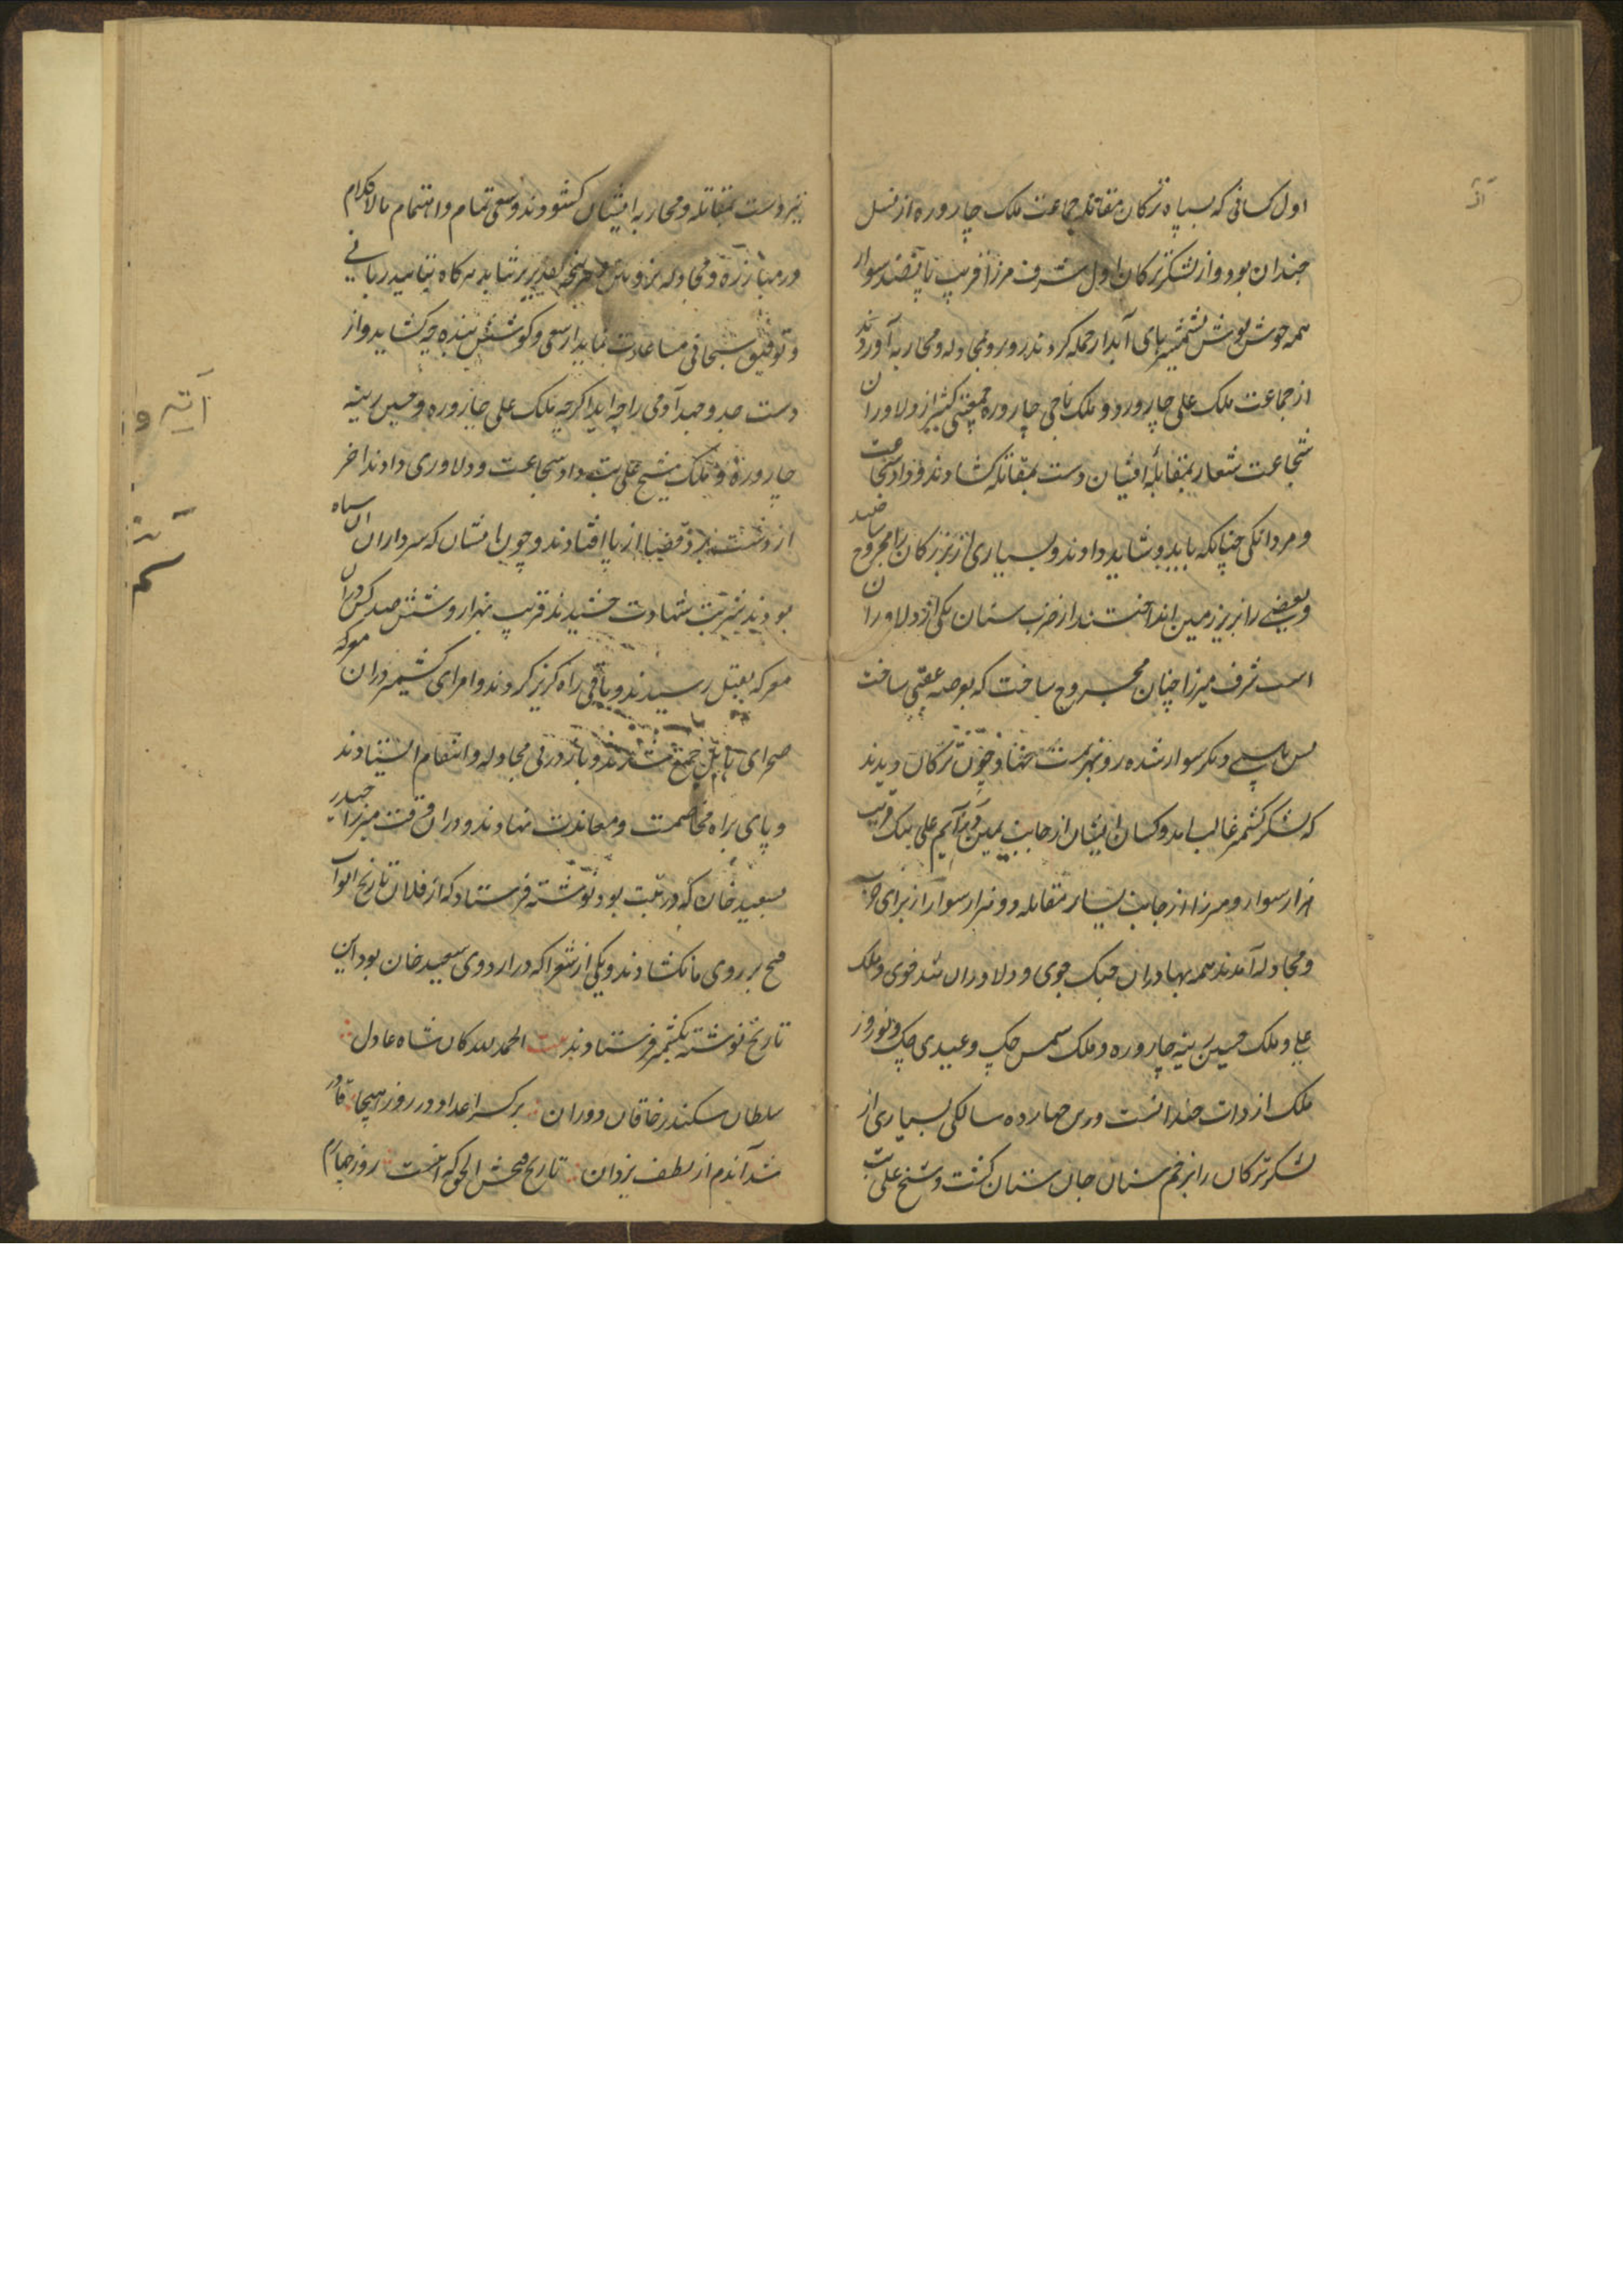 اول کسانی که بسپاه ترکان مقاتله جماعت ملک چاروره از نسل
چندان بود و از لشکر ترکان اول شرف مرزا قریب پانصد سوار
همه جوش پوش شمشیرهای آبدار حمله کردند و رو بر و مجادله و محاربه آوردند
از جماعت ملک علی چاروره و ملک باجی چاروره جمعیتی کثیر از دلاوران
شجاعت شعار بمقابله ایشان دست بمقاتله کشادند و داد شجاعت
و مردانکی چنانکه باید و شاید دادند و بسیاری از ترکان را مجروح ساختند
و بعضی را بر زمین انداختند از ضرب سنان یکی از دلاوران
است شرف میرزا چنان مجروح ساخت که
پس دیکر سوار شده رو بهزیمت نهاد و چون ترکان دیدند
که لشکر کشمیر غالب امد و کسان ایشان از جانب یمین علی بیک قریب
هزار سوار و میرزا از جانب یسار مقابله دو هزار سوار از برای حرب
و مجادله آمدند همه بهادران جنک جوی و دلاوران تند خوی و ملک
علی و ملک حسین رینه چاروره و ملک شمس چک و عیدی چک و نوروز
ملک بسیاری از
لشکر ترکان را بزخم سنان جان ستان کشت و شیخ علی بت
نیز دست بمقاتله و محاربه ایشان کشودند و سعی تمام و اهتمام مالاکلام
در مبارزه و مجادله تائید ربانی
و توفیق سبحانی مساعدت نماید از سعی و کوشش بنده چه کشاید و از
دست جد و جهد آدمی را چه آید اکرچه ملک علی چاروره و حسین رینه
چاروره و ملک شیخ علی بت داد شجاعت و دلاوری دادند اخر
از قضا از پا افتادند و چون ایشان که سرداران ان سپاه
بودند شربت شهادت چشیدند قریب هزار و شش صد کس دران
معرکه بقتل رسیدند و باقی راه کریز کردند و امرای کشمیر دران معرکه
صحرای جمع شدند و باز در پی مجادله و انتقام ایستادند
و پای براه مخاصمت و معاندت نهادند و دران وقت میرزا حیدر
بسعید خان که در تبت بود نوشته فرستاد که از فلان تاریخ ابواب
فتح بر روی ما نکشادند و یکی از شعرا که در اردوی سعید خان بود این
تاریخ نوشته بکشمیر فرستادند بیت الحمد لله کان شاه عادل
سلطان سکندر خاقان دوران بر کسر اعدا در روز هیجا قادر
شد آندم از لطف یزدان تاریخ فتحش الحق که انست روز چهارم